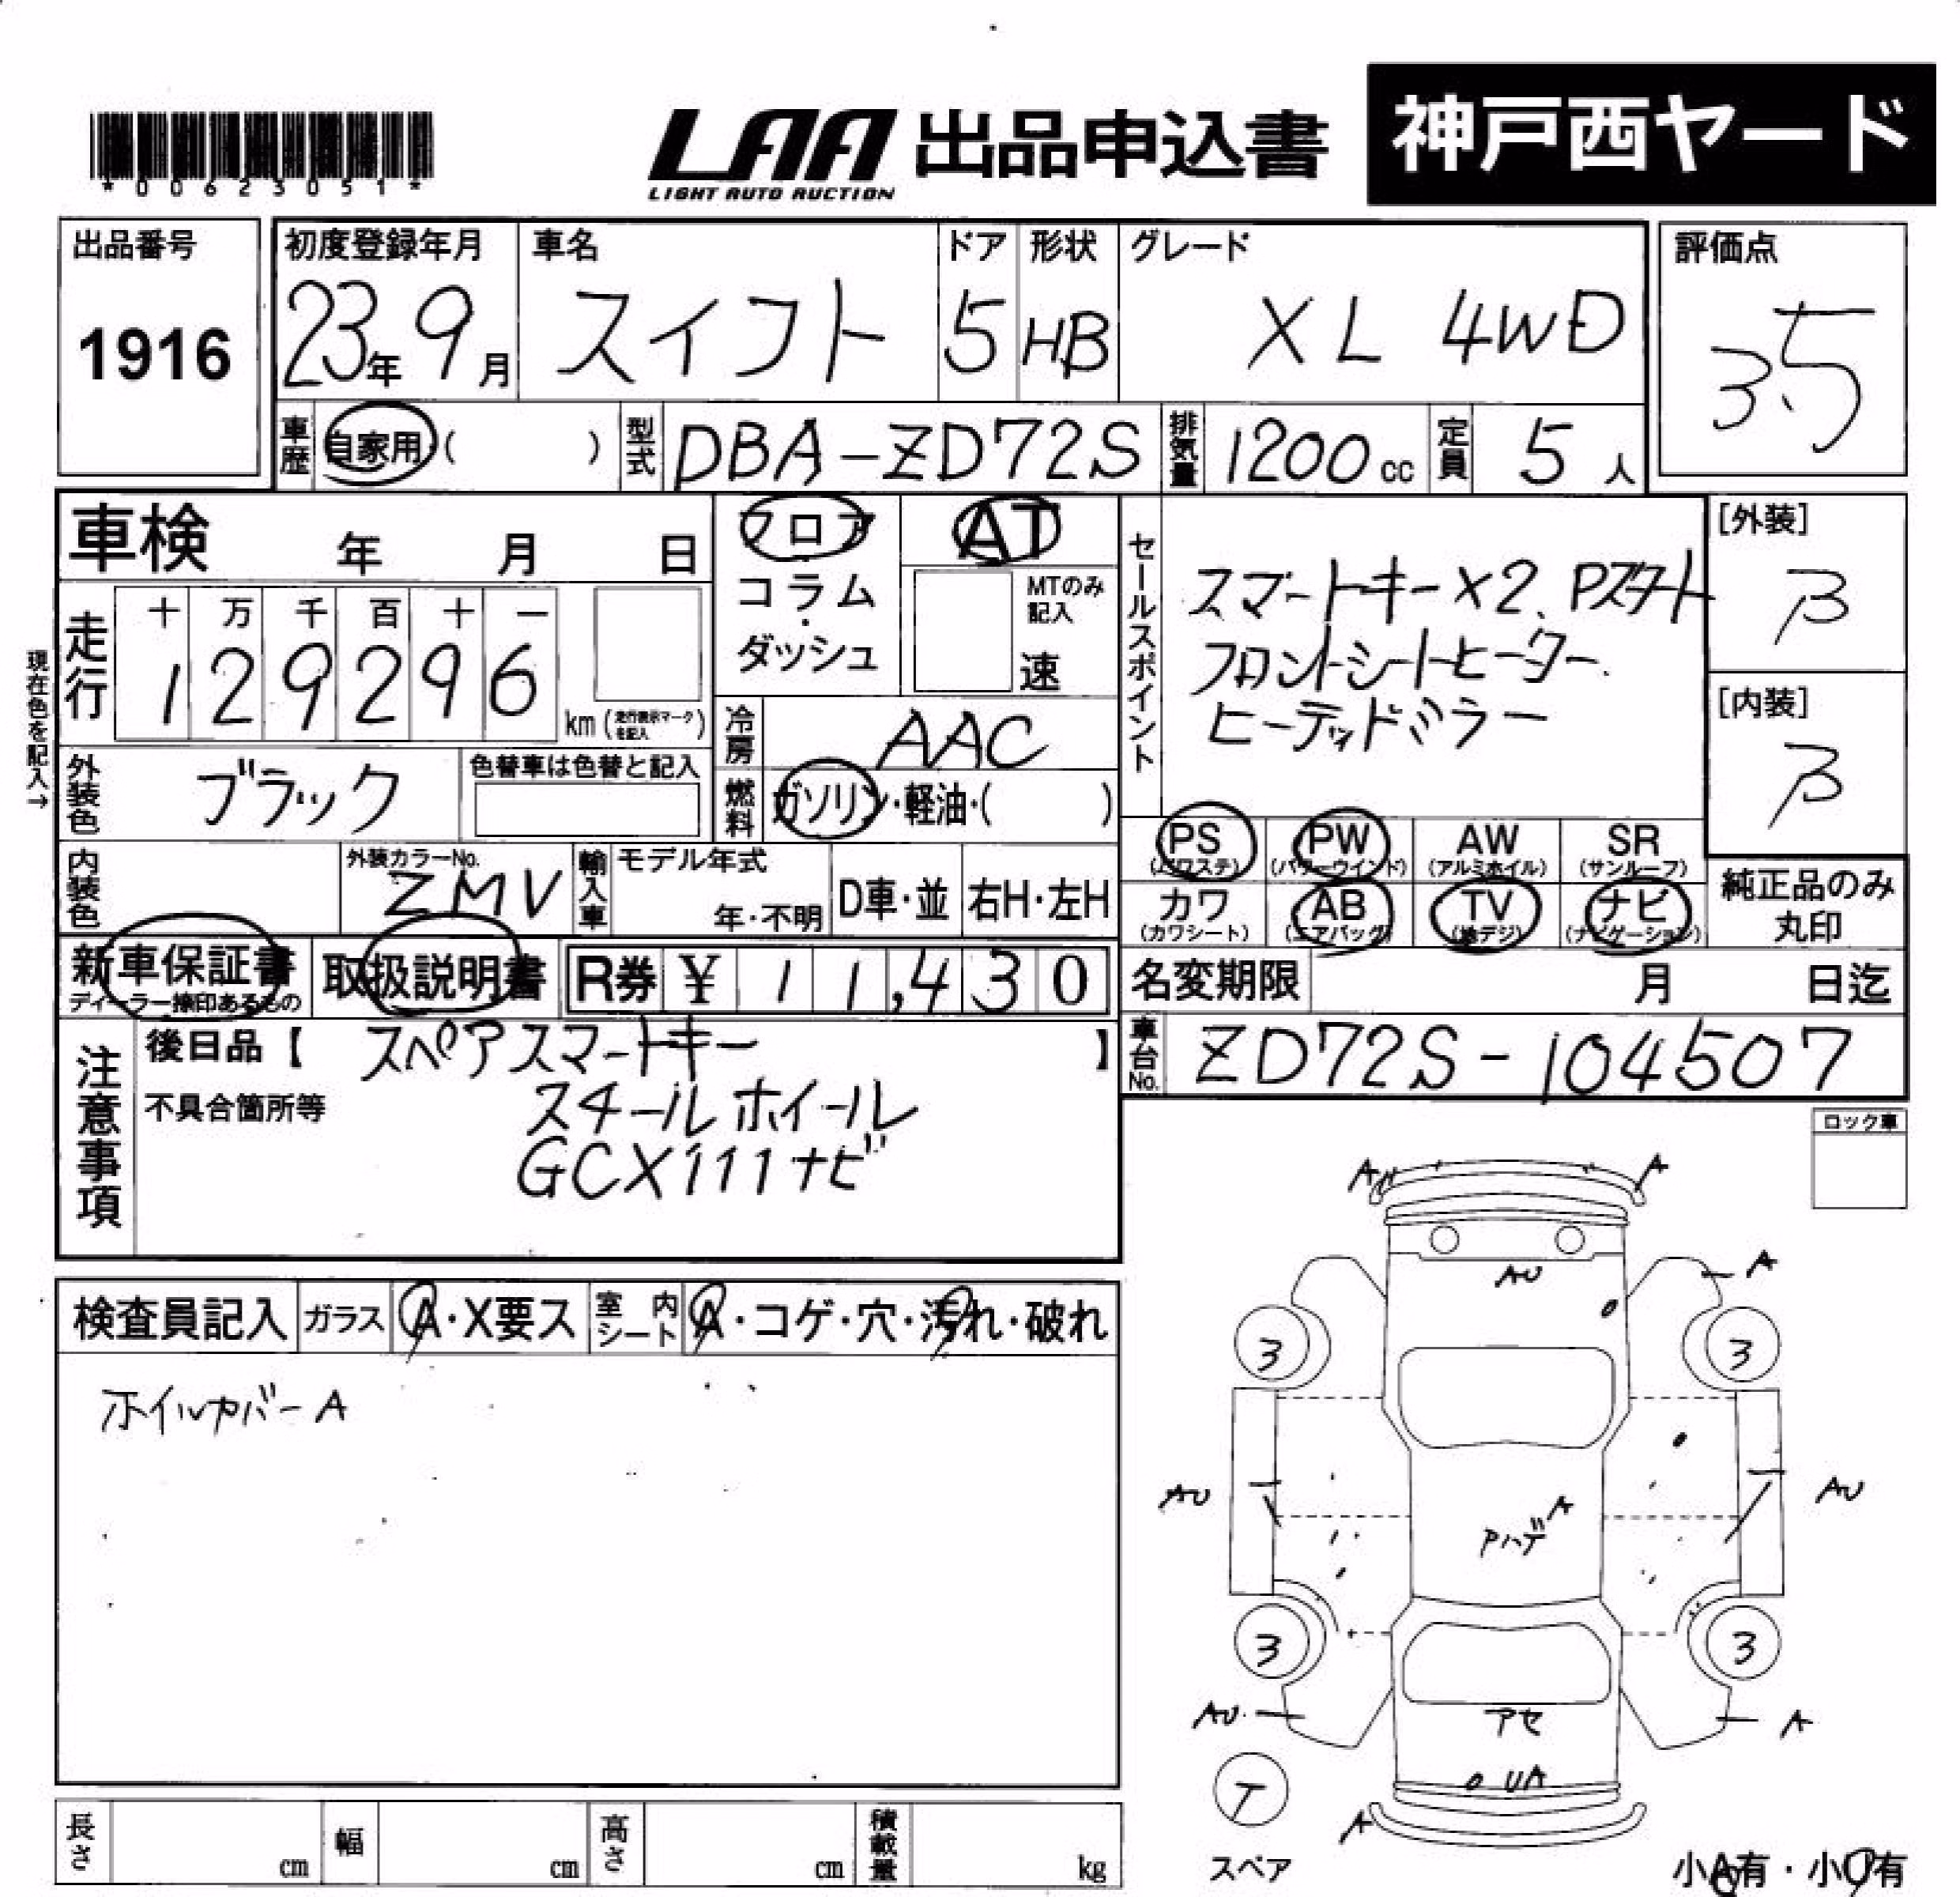 *00623051*
LAA 出品申込書 神戸西ヤード
LIGHT AUTO AUCTION
出品番号 1916
初度登録年月 23年 9月
車名 スイフト
ドア 5
形状 HB
グレード XL 4WD
評価点 3.5
車歴 自家用 ( )
型式 DBA-ZD72S
排気量 1200 cc
定員 5 人
車検 年 月 日
フロア・コラム・ダッシュ
AT
MTのみ記入 速
現在色を記入→
走行 十 万 千 百 十 一
129296 km (走行表示マークを記入)
冷房 AAC
燃料 ガソリン・軽油・( )
外装色 ブラック
色替車は色替と記入
内装色
外装カラーNo. ZMV
輸入車 モデル年式 年・不明 D車・並 右H・左H
セールスポイント
スマートキー×2、Pスタート
フロントシートヒーター.
ヒーテッドミラー
[外装] B
[内装] B
PS (パワステ) PW (パワーウインド) AW (アルミホイル) SR (サンルーフ)
カワ (カワシート) AB (エアバッグ) TV (地デジ) ナビ (ナビゲーション)
純正品のみ丸印
新車保証書 ディーラー捺印あるもの
取扱説明書
R券 ¥ 11,430
名変期限 月 日迄
車台No. ZD72S-104507
注意事項
後日品【 スペアスマートキー 】
不具合箇所等 スチールホイール
GCX111ナビ
ロック車
検査員記入 ガラス A・X要ス 室内シート A・コゲ・穴・汚れ・破れ
ホイルカバーA
A A
AU
A
3 3
AU AU
A
Pハゲ
3 3
AU アセ A
UA
T
A
スペア
小A有・小U有
長さ cm 幅 cm 高さ cm 積載量 kg